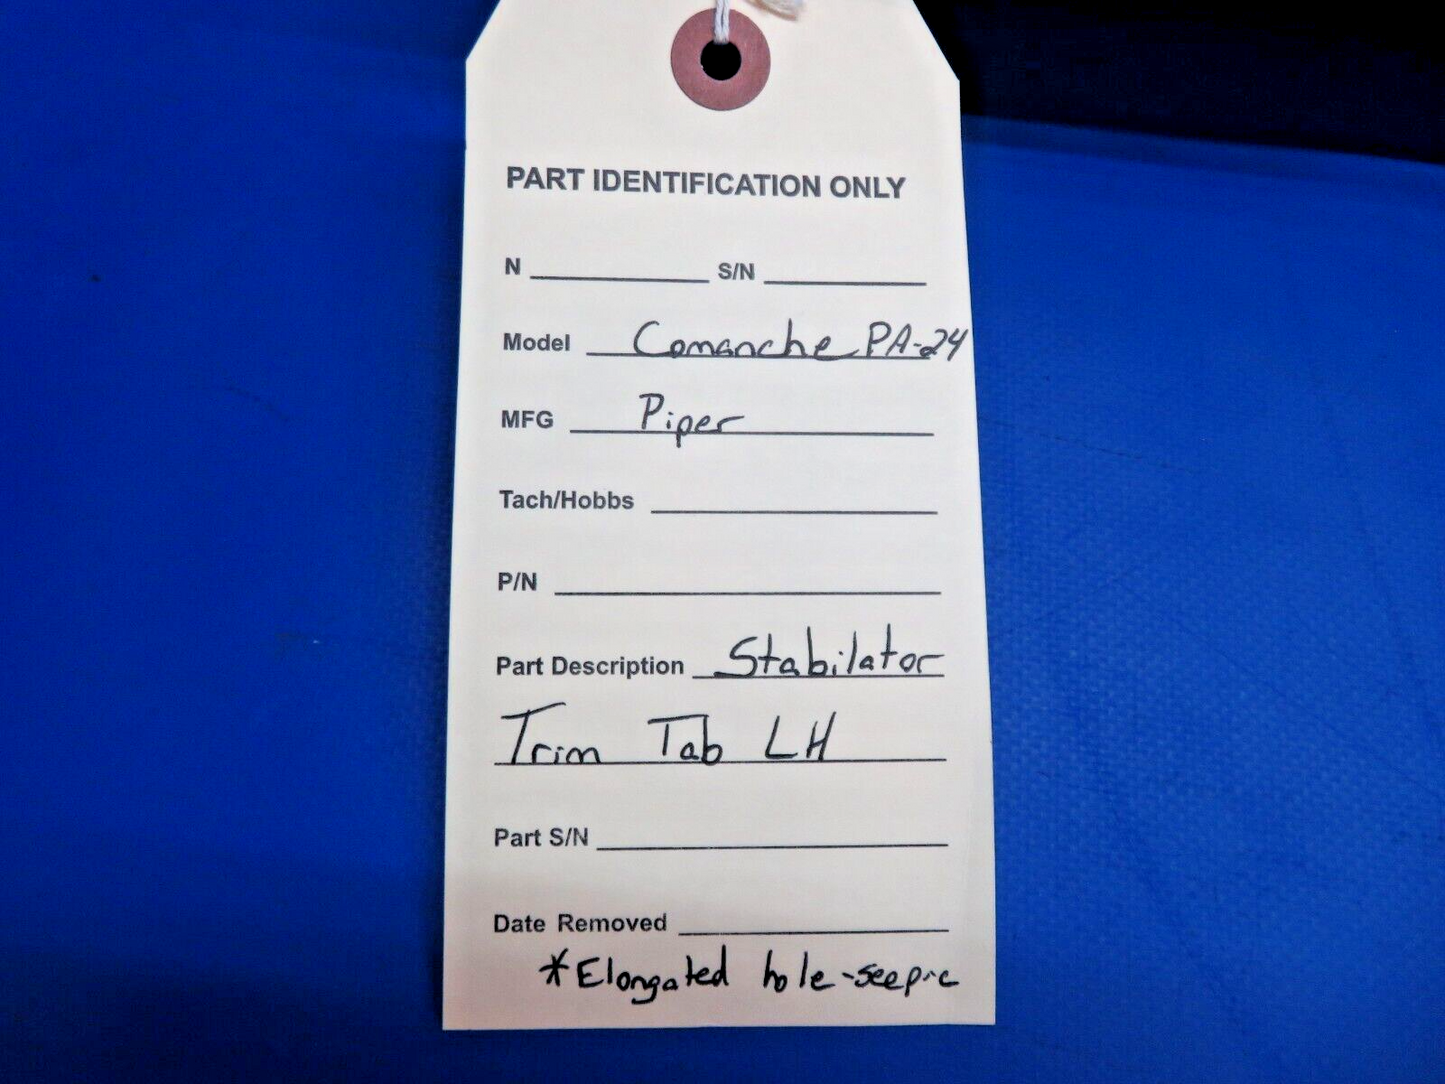 PART IDENTIFICATION ONLY
N S/N
Model Comanche PA-24
MFG Piper
Tach/Hobbs
P/N
Part Description Stabilator
Trim Tab LH
Part S/N
Date Removed
*Elongated hole-see pic